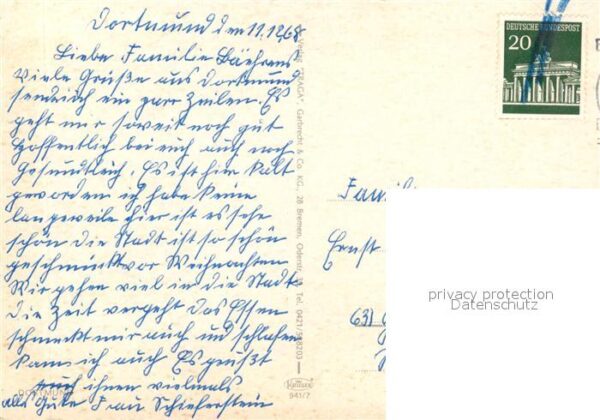 Dortmund den 11.12.68
Liebe Familie Bährens
Viele Grüße aus Dortmund
sende ich ein paar Zeilen. Es
geht mir soweit noch gut
Hoffentlich bei euch auch noch
Gesundlich. Es ist hier kalt
geworden ich habe keine
langeweile hier ist es sehr
schön die Stadt ist so schön
geschmückt vor Weihnachten
Wir gehen viel in die Stadt
die Zeit vergeht das Essen
schmeckt mir auch und schlafen
kann ich auch Es grüßt
euch ihnen vielmals
alles Gute Frau
DORTMUND
Verlag "PRAGA", Garbrecht & Co. KG., 28 Bremen, Oderstr. Tel. 0421/
Kettner
941/7
DEUTSCHE BUNDESPOST
20
Famili
Ernst
631
privacy protection
Datenschutz